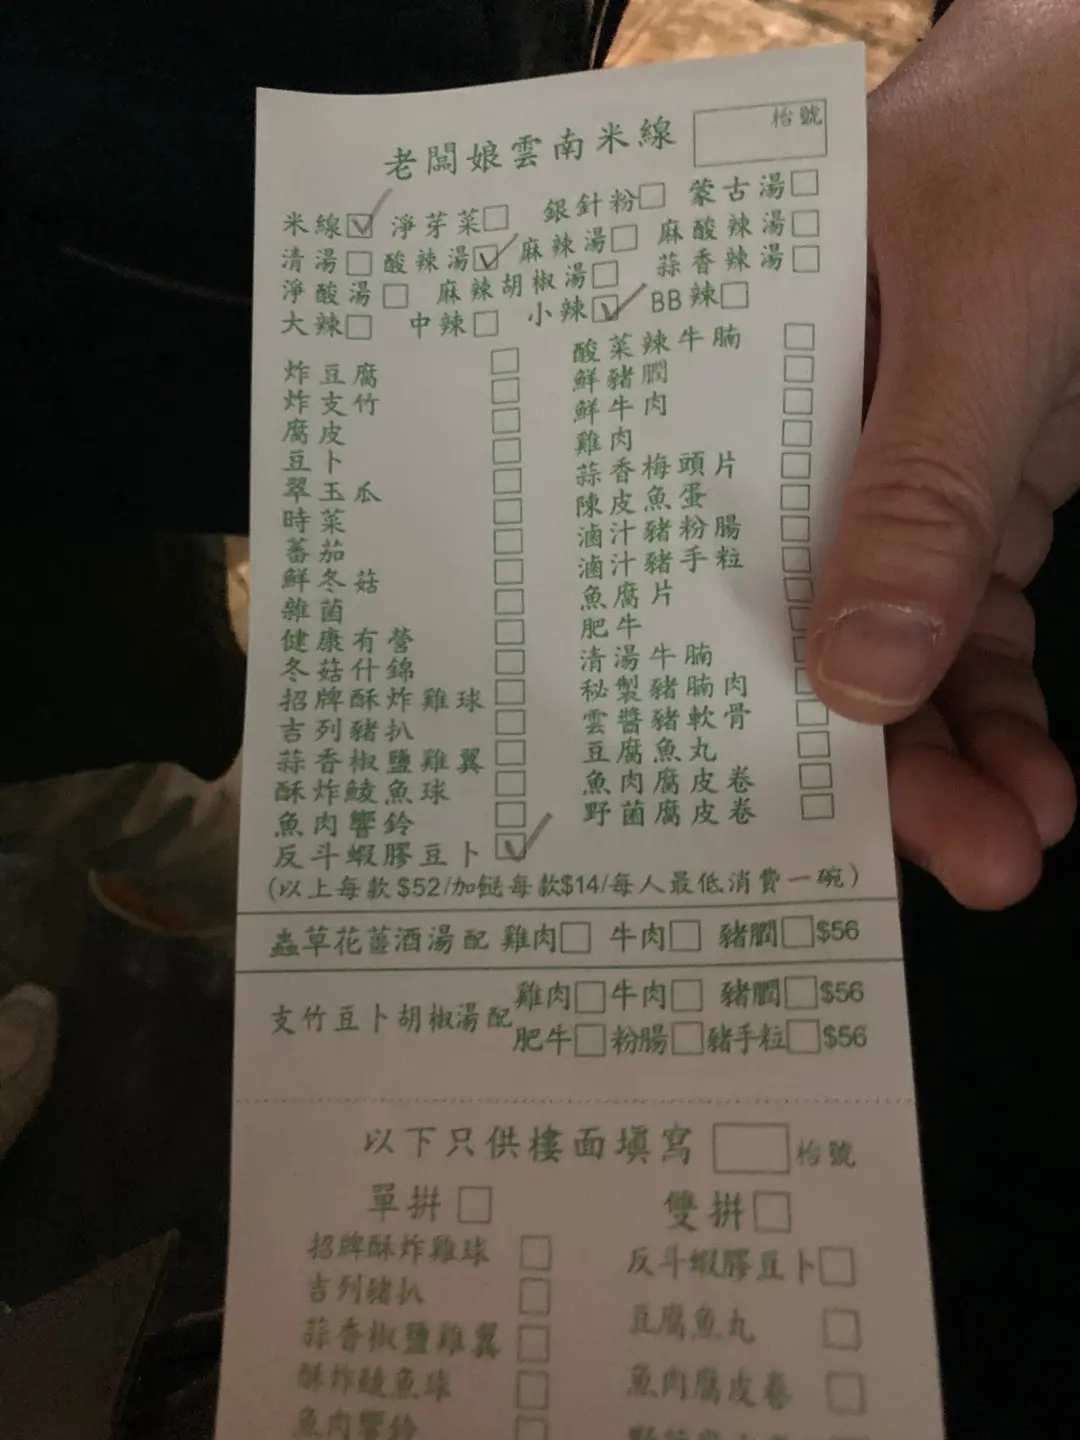 老闆娘雲南米線 枱號
米線☑ 淨芽菜□ 銀針粉□ 蒙古湯□
清湯□ 酸辣湯☑ 麻辣湯□ 麻酸辣湯□
淨酸湯□ 麻辣胡椒湯□ 蒜香辣湯□
大辣□ 中辣□ 小辣☑ BB辣□
炸豆腐□
炸支竹□
腐皮□
豆卜□
翠玉瓜□
時菜□
蕃茄□
鮮冬菇□
雜菌□
健康有營□
冬菇什錦□
招牌酥炸雞球□
吉列豬扒□
蒜香椒鹽雞翼□
酥炸鯪魚球□
魚肉響鈴□
反斗蝦膠豆卜☑
酸菜辣牛腩□
鮮豬膶□
鮮牛肉□
雞肉□
蒜香梅頭片□
陳皮魚蛋□
滷汁豬粉腸□
滷汁豬手粒□
魚腐片□
肥牛□
清湯牛腩□
秘製豬腩肉□
雲醬豬軟骨□
豆腐魚丸□
魚肉腐皮卷□
野菌腐皮卷□
(以上每款$52/加餸每款$14/每人最低消費一碗)
蟲草花薑酒湯配 雞肉□ 牛肉□ 豬膶□$56
支竹豆卜胡椒湯配 雞肉□牛肉□ 豬膶□$56
肥牛□粉腸□豬手粒□$56
以下只供樓面填寫 □枱號
單拼□ 雙拼□
招牌酥炸雞球□ 反斗蝦膠豆卜□
吉列豬扒□ 豆腐魚丸□
蒜香椒鹽雞翼□ 魚肉腐皮卷□
酥炸鯪魚球□
魚肉響鈴